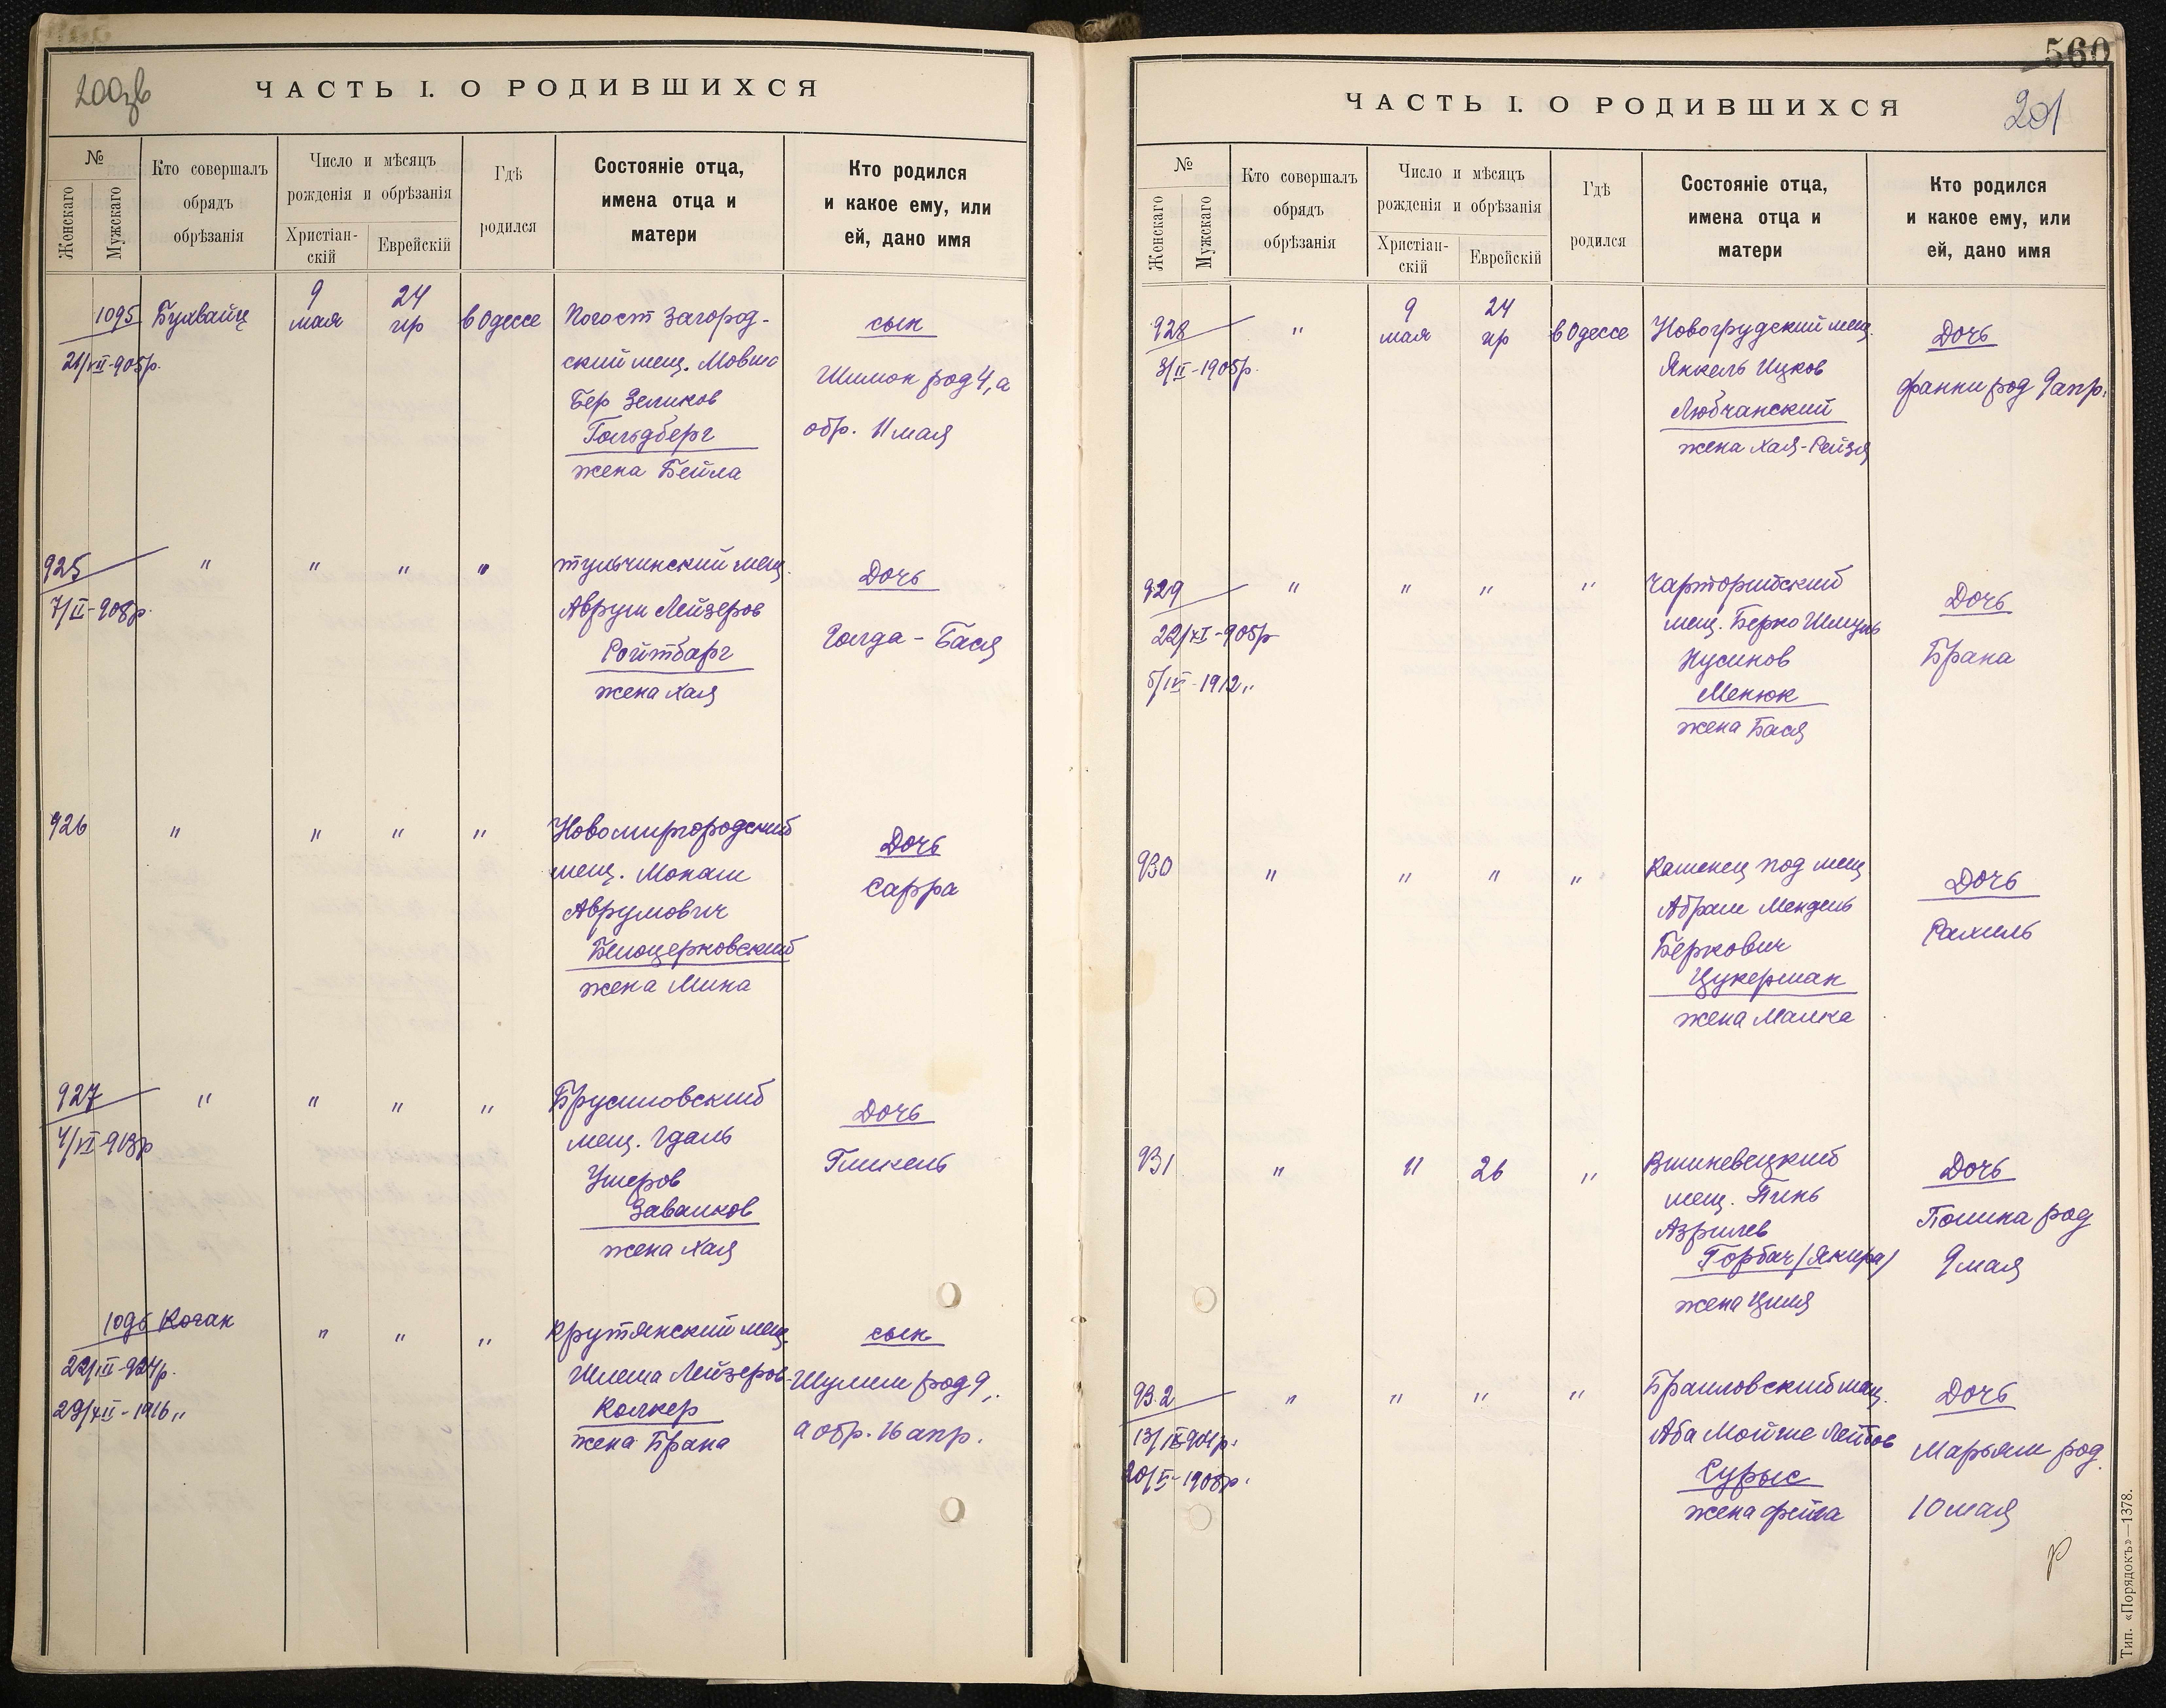 200зв
ЧАСТЬ I. О РОДИВШИХСЯ
№
Женскаго
Мужскаго
Кто совершалъ
обрядъ
обрѣзанія
Число и мѣсяцъ
рожденія и обрѣзанія
Христіан-
скій
Еврейскій
Гдѣ
родился
Состояніе отца,
имена отца и
матери
Кто родился
и какое ему, или
ей, дано имя
1095
21/VII-905р.
Бухвайц
9
мая
24
ир
в Одессе
Погост Загород-
ский мещ. Мовшо
Бер Зеликов
Гольдберг
жена Бейла
сын
Шимон род 4, а
обр. 11 мая
925
7/II-908р.
" " " "
тульчинский мещ.
Аврум Лейзеров
Ройтбарг
жена Хая
Дочь
Голда - Бася
926
" " " "
Новомиргородский
мещ. Монаш
Аврумович
Белоцерковский
жена Мина
Дочь
Сарра
927
4/VI-913р
" " " "
Брусиловский
мещ. Гдаль
Ушеров
Завалков
жена Хая
Дочь
Гликель
1096
22/III-924р.
29/XII-1916 "
Коган
" " "
Крутянский мещ.
Шлема Лейзеров
Колкер
жена Брана
сын
Шулим род 9,
а обр. 16 апр.
560
201
ЧАСТЬ I. О РОДИВШИХСЯ
№
Женскаго
Мужскаго
Кто совершалъ
обрядъ
обрѣзанія
Число и мѣсяцъ
рожденія и обрѣзанія
Христіан-
скій
Еврейскій
Гдѣ
родился
Состояніе отца,
имена отца и
матери
Кто родился
и какое ему, или
ей, дано имя
928
3/II-1905р.
"
9
мая
24
ир
в Одессе
Новогрудский мещ.
Янкель Ицков
Любчанский
жена Хая-Рейзя
Дочь
Фанни род 9 апр.
929
22/XI-905р
5/IV-1912 "
" " " "
Чарторийский
мещ. Берко Шмуль
Нусинов
Менюк
жена Бася
Дочь
Брана
930
" " " "
Каменец под мещ
Абрам Мендель
Беркович
Цукерман
жена Малка
Дочь
Рахиль
931
" 11 26 "
Вишневецкий
мещ. Пинь
Азрилев
Горбач (Якира)
жена Циля
Дочь
Полина род
9 мая
932
13/IX-904р.
20/V-1908р.
" " " "
Браиловский мещ.
Аба Мойше Лейбов
Сурыс
жена Фейга
Дочь
Марьям род.
10 мая
Тип. «Порядокъ»—1378.